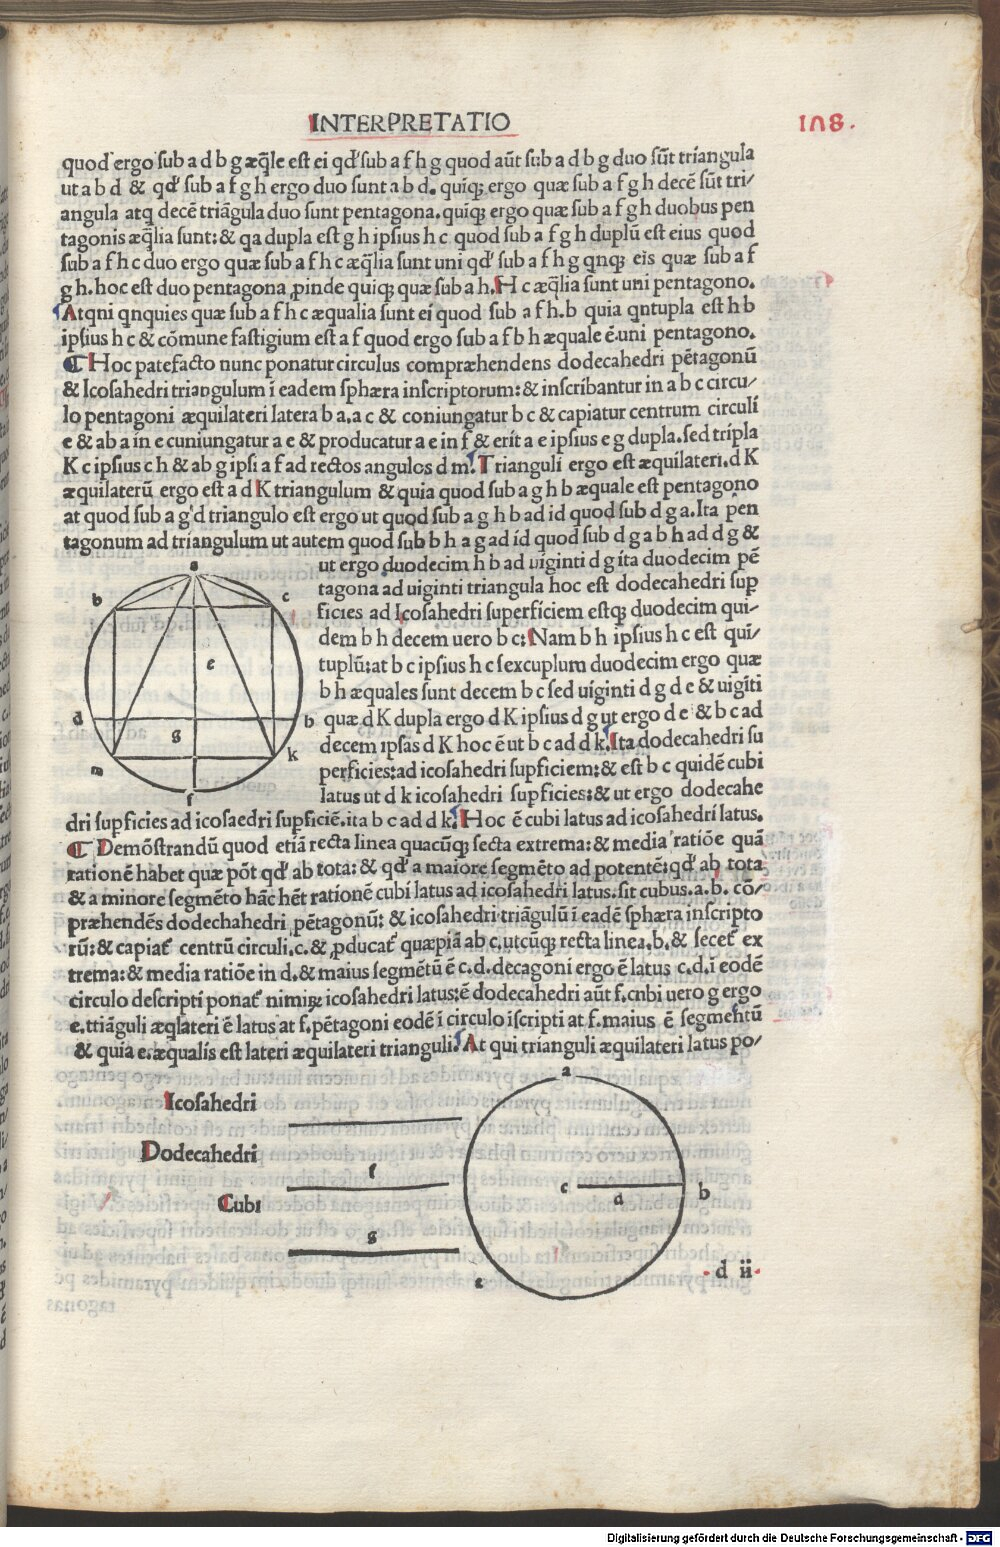 INTERPRETATIO
108.
quod ergo sub a d b g æq̃le est ei qđ sub a f h g quod aũt sub a d b g duo sũt triangula
ut a b d & qđ sub a f g h ergo duo sunt a b d. quiq; ergo quæ sub a f g h decẽ sũt tri/
angula atq decẽ triãgula duo sunt pentagona. quiq; ergo quæ sub a f g h duobus pen
tagonis æq̃lia sunt: & qa dupla est g h ipsius h c quod sub a f g h duplũ est eius quod
sub a f h c duo ergo quæ sub a f h c æq̃lia sunt uni qđ sub a f h g qnq; eis quæ sub a f
g h. hoc est duo pentagona ꝓinde quiq; quæ sub a h. H c æq̃lia sunt uni pentagono.
Atqni qnquies quæ sub a f h c æqualia sunt ei quod sub a f h. b quia qntupla est h b
ipsius h c & cõmune fastigium est a f quod ergo sub a f b h æquale ẽ uni pentagono.
¶ Hoc patefacto nunc ponatur circulus compræhendens dodecahedri pẽtagonũ
& Icosahedri triangulum ĩ eadem sphæra inscriptorum: & inscribantur in a b c circu/
lo pentagoni æquilateri latera b a. a c & coniungatur b c & capiatur centrum circuli
e & ab a in e cuniungatur a e & producatur a e in f & erit a e ipsius e g dupla. sed tripla
K c ipsius c h & ab g ipsi a f ad rectos angulos d m. Trianguli ergo est æquilateri. d K
æquilaterũ ergo est a d K triangulum & quia quod sub a g h b æquale est pentagono
at quod sub a g d triangulo est ergo ut quod sub a g h b ad id quod sub d g a. Ita pen
tagonum ad triangulum ut autem quod sub b h a g ad id quod sub d g a b h ad d g &
ut ergo duodecim h b ad uiginti d g ita duodecim pẽ
tagona ad uiginti triangula hoc est dodecahedri suꝑ
ficies ad Icosahedri superficiem estq; duodecim qui/
dem b h decem uero b c: Nam b h ipsius h c est qui/
tuplũ: at b c ipsius h c sexcuplum duodecim ergo quæ
b h æquales sunt decem b c sed uiginti d g d e & uigĩti
quæ d K dupla ergo d K ipsius d g ut ergo d e & b c ad
decem ipsas d K hoc ẽ ut b c ad d k. Ita dodecahedri su
perficies: ad icosahedri suꝑficiem: & est b c quidẽ cubi
latus ut d k icosahedri suꝑficies: & ut ergo dodecahe
dri suꝑficies ad icosaedri suꝑficiẽ. ita b c ad d k. Hoc ẽ cubi latus ad icosahedri latus.
¶ Demõstrandũ quod etiã recta linea quacũq; secta extrema: & media ratiõe quã
rationẽ habet quæ põt qđ ab tota: & qđ a maiore segmẽto ad potentẽ: qđ ab tota
& a minore segmẽto hãc hẽt rationẽ cubi latus ad icosahedri latus. sit cubus. a. b. cõ/
præhendẽs dodechahedri pẽtagonũ: & icosahedri triãgulũ ĩ eadẽ sphæra inscripto
rũ: & capiat᷑ centrũ circuli. c. & ꝓducat᷑ quæpiã ab c. utcũq; recta linea. b. & secet᷑ ex
trema: & media ratiõe in d. & maius segmẽtũ ẽ c. d. decagoni ergo ẽ latus c. d. ĩ eodẽ
circulo descripti ponat᷑ nimiꝝ icosahedri latus: ẽ dodecahedri aũt f. cnbi uero g ergo
e. ttiãguli æqlateri ẽ latus at f. pẽtagoni eodẽ ĩ circulo ĩscripti at f. maius ẽ segmentũ
& quia e. æqualis est lateri æquilateri trianguli. At qui trianguli æquilateri latus po/
a
b
c
e
d
b
g
k
m
f
Icosahedri
Dodecahedri
f
Cubi
g
a
c
d
b
e
d ii
Digitalisierung gefördert durch die Deutsche Forschungsgemeinschaft - DFG